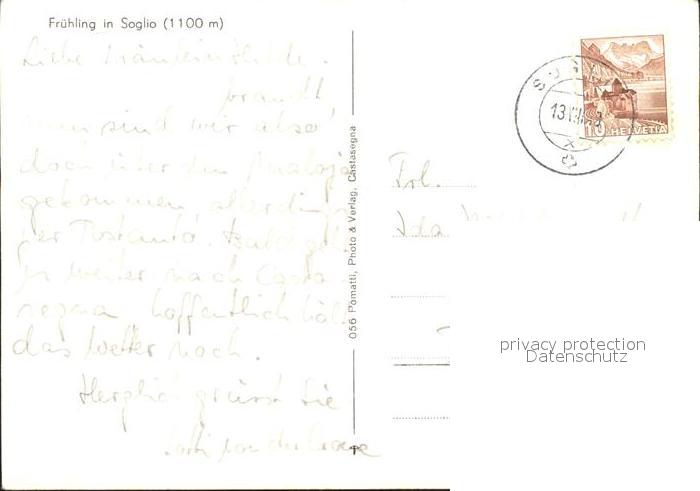 Frühling in Soglio (1100 m)
Liebe Fräulein Hilde-
brandt,
nun sind wir also
doch über den Maloja
gekommen, allerdings
per Postauto. Bald geht
es weiter nach Casta-
segna hoffentlich hält
das Wetter noch.
Herzlich grüsst Sie
056 Pomatti, Photo & Verlag, Castasegna
10 HELVETIA
Frl.
Ida
privacy protection
Datenschutz